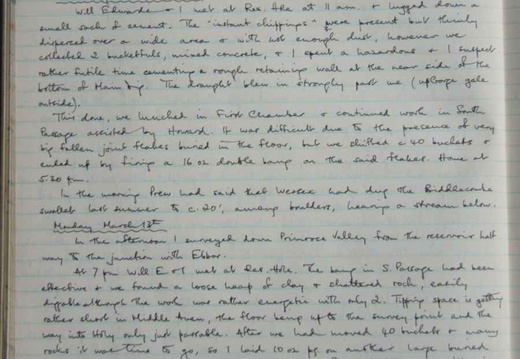 Will Edwards + I met at Res. Hole at 11 am. + lugged down a
small sack of cement. The "instant chippings" were present but thinly
dispersed over a wide area + with not enough dust, however we
collected 2 bucketfuls, mixed concrete, + I spent a hazardous + I suspect
rather futile time cementing a rough retaining wall at the near side of the
bottom of Main Dig. The draught blew in strongly past me (
outside).
This done, we lunched in First Chamber + continued work in South
Passage assisted by Howard. It was difficult due to the presence of very
big fallen joint flakes buried in the floor, but we shifted c 40 buckets +
ended up by firing a 16 oz double bang on the said flakes. Home at
5.20 pm.
In the morning Prew had said that Wessex had dug the Biddlecombe
swallet last summer to c. 20', among boulders, hearing a stream below.
Monday March 13th
In the afternoon I surveyed down Primrose Valley from the reservoir half
way to the junction with Ebbor.
At 7 pm Will E + I met at Res. Hole. The bang in S. Passage had been
effective + we found a loose heap of clay + shattered rock, easily
diggable although the work was rather energetic with only 2. Tipping space is getting
rather short in Middle Aven, the floor being up to the survey point and the
way into Holly only just passable. After we had moved 40 buckets + many
rocks it was time to go, so I laid 10 oz pg on another large buried